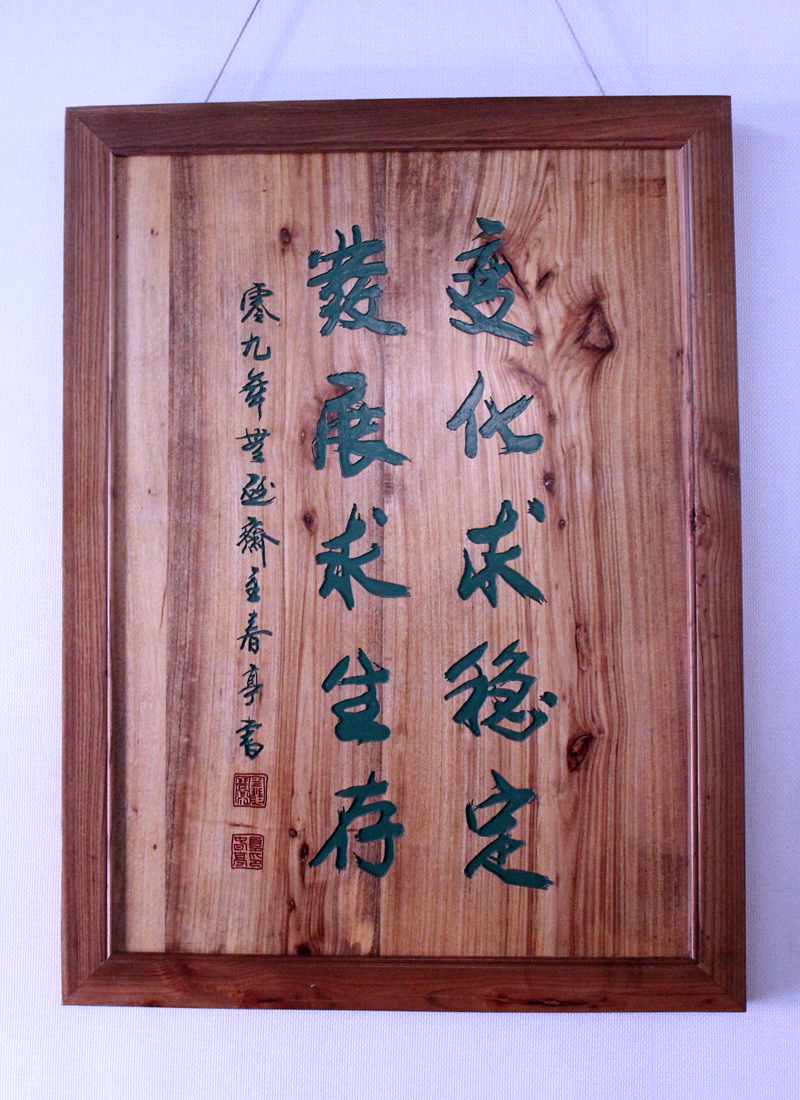 变化求稳定
發展求生存
零九年齋主春亭書